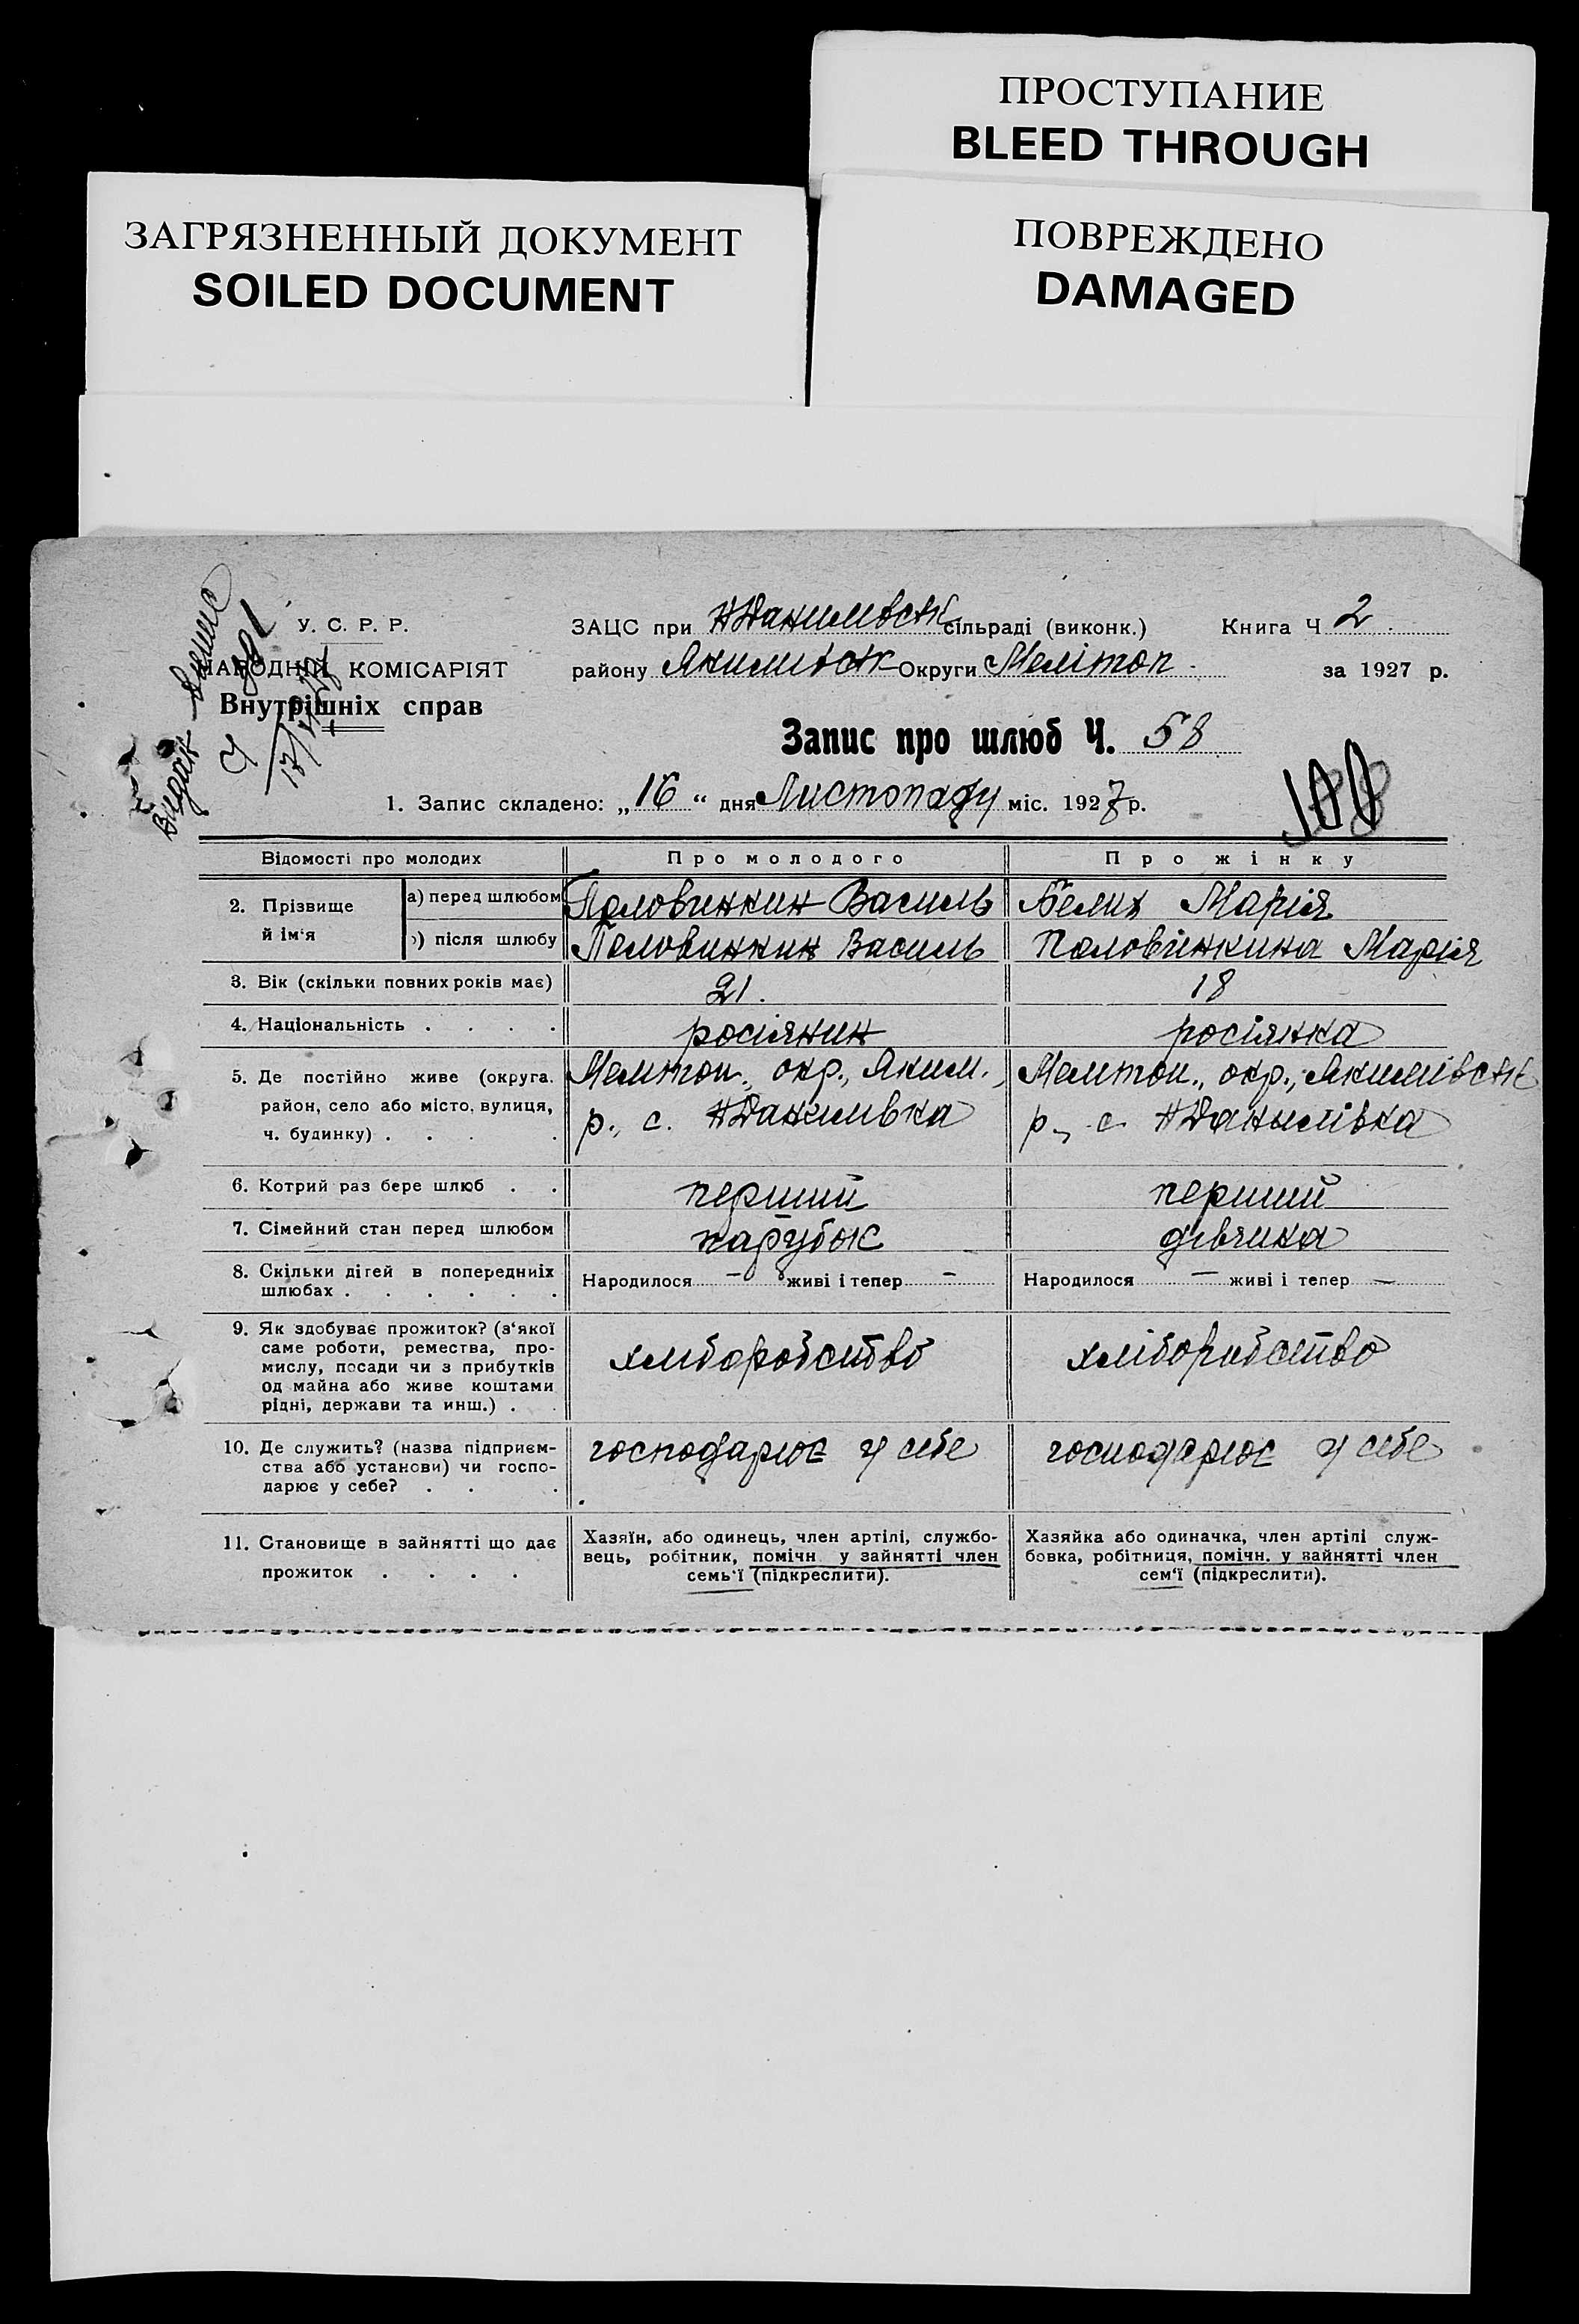 ПРОСТУПАНИЕ
BLEED THROUGH
ЗАГРЯЗНЕННЫЙ ДОКУМЕНТ
SOILED DOCUMENT
ПОВРЕЖДЕНО
DAMAGED
У. С. Р. Р.
НАРОДНІЙ КОМІСАРІЯТ
Внутрішніх справ
ЗАЦС при НДанилівськ сільраді (виконк.) Книга Ч 2
району Якимівськ Округи Мелітоп. за 1927 р.
Запис про шлюб Ч. 58
100
1. Запис складено: „16“ дня Листопаду міс. 1927 р.
Відомості про молодих Про молодого Про жінку
2. Прізвище й ім'я
а) перед шлюбом Половинкин Василь Белих Марія
б) після шлюбу Половинкин Василь Половінкина Марія
3. Вік (скільки повних років має) 21. 18
4. Національність . . . . росіянин росіянка
5. Де постійно живе (округа. район, село або місто, вулиця, ч. будинку) . . . .
Мелітоп., окр., Яким.,
р., с. НДанилівка
Мелітоп., окр., Якимівськ
р., с. НДанылівка
6. Котрий раз бере шлюб . . перший перший
7. Сімейний стан перед шлюбом парубок дівчина
8. Скільки дітей в попередніх
шлюбах . . . . . .
Народилося — живі і тепер — Народилося — живі і тепер —
9. Як здобуває прожиток? (з'якої
саме роботи, ремества, про-
мислу, посади чи з прибутків
од майна або живе коштами
рідні, держави та инш.) . .
хліборобство хліборобство
10. Де служить? (назва підприєм-
ства або установи) чи госпо-
дарює у себе? . . .
господарює у себе господарює у себе
11. Становище в зайнятті що дає
прожиток . . . .
Хазяїн, або одинець, член артілі, службо-
вець, робітник, помічн. у зайнятті член
семь'ї (підкреслити).
Хазяйка або одиначка, член артілі служ-
бовка, робітниця, помічн. у зайнятті член
сем'ї (підкреслити).